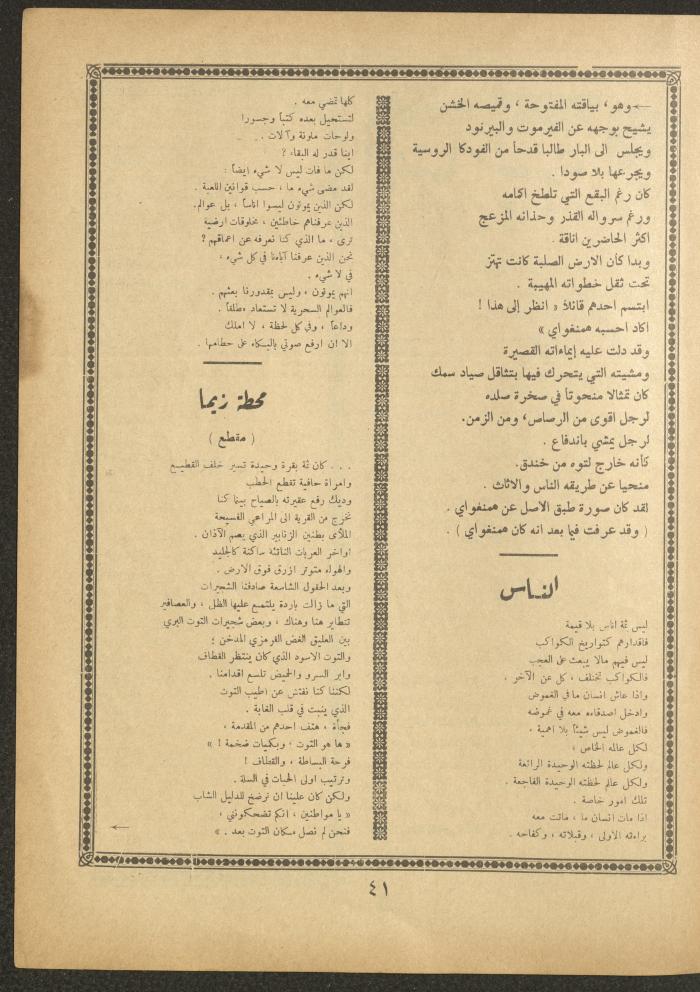 وهو، بياقته المفتوحة، وقميصه الخشن
يشيح بوجهه عن الفيرموت والبيرنود
ويجلس الى البار طالبا قدحاً من الفودكا الروسية
ويجرعها بلا صودا .
كان رغم البقع التي تلطخ اكمامه
ورغم سرواله القذر وحذائه المزعج
اكثر الحاضرين اناقة .
وبدا كأن الارض الصلبة كانت تهتز
تحت ثقل خطواته المهيبة .
ابتسم احدهم قائلاً « انظر إلى هذا !
اكاد احسبه همنغواي »
وقد دلت عليه إيماءاته القصيرة
ومشيته التي يتحرك فيها بتثاقل صياد سمك
كان تمثالا منحوتاً في صخرة صلده
لرجل اقوى من الرصاص، ومن الزمن.
لرجل يمشي باندفاع .
كأنه خارج لتوه من خندق.
منحيا عن طريقه الناس والاثاث .
لقد كان صورة طبق الاصل عن همنغواي .
( وقد عرفت فيما بعد انه كان همنغواي ) .
الناس
ليس ثمة اناس بلا قيمة
فاقدارهم كتواريخ الكواكب
ليس فيهم مالا يبعث على العجب
فالكواكب تختلف ، كل عن الآخر .
واذا عاش انسان ما في الغموض
وادخل اصدقاءه معه في غموضه
فالغموض ليس شيئاً بلا اهمية .
لكل عالمه الخاص ،
ولكل عالم لحظته الوحيدة الرائعة
ولكل عالم لحظته الوحيدة الفاجعة .
تلك امور خاصة .
اذا مات انسان ما ، ماتت معه
براءته الاولى ، وقبلاته ، وكفاحه .
كلها تمضي معه .
لتستحيل بعده كتباً وجسورا
ولوحات ملونة وآلات .
اينا قدر له البقاء ؟
لكن ما فات ليس لا شيء ايضاً :
لقد مضى شيء ما ، حسب قوانين اللعبة .
لكن الذين يموتون ليسوا اناساً ، بل عوالم.
الذين عرفناهم خاطئين ، مخلوقات ارضية
ترى ، ما الذي كنا نعرفه عن اعماقهم ؟
نحن الذين عرفنا آباءنا في كل شيء ،
في لا شيء .
انهم يموتون ، وليس بمقدورنا بعثهم .
فالعوالم السحرية لا تستعاد مطلقاً .
وداعاً ، وفي كل لحظة ، لا املك
الا ان ارفع صوتي بالبكاء على حطامها .
محطة زيما
( مقطع )
. . . كان ثمة بقرة وحيدة تسير خلف القطيع
وامراة حافية تقطع الحطب
وديك رفع عقيرته بالصياح بينما كنا
نخرج من القرية الى المراعي الفسيحة
الملأى بطنين الزنابير الذي يصم الآذان .
اواخر العربات الناتئة ساكنة كالجليد
والهواء متوتر ازرق فوق الارض .
وبعد الحقول الشاسعة صادفنا الشجيرات
التي ما زالت باردة يلتمع عليها الظل ، والعصافير
تتطاير هنا وهناك ، وبعض شجيرات التوت البري
بين العليق الغض القرمزي المدخن ؛
والتوت الاسود الذي كان ينتظر القطاف
وابر السرو والحميض تلسع اقدامنا .
لكننا كنا نفتش عن اطيب التوت
الذي ينبت في قلب الغابة .
فجأة ، هتف احدهم من المقدمة ،
« ها هو التوت ، وبكميات ضخمة ! »
فرحة البساطة ، والقطاف !
وترتيب اولى الحبات في السلة .
ولكن كان علينا ان نرضخ للدليل الشاب
« يا مواطنين ، انكم تضحكونني ،
فنحن لم نصل مكان التوت بعد . »
٤١